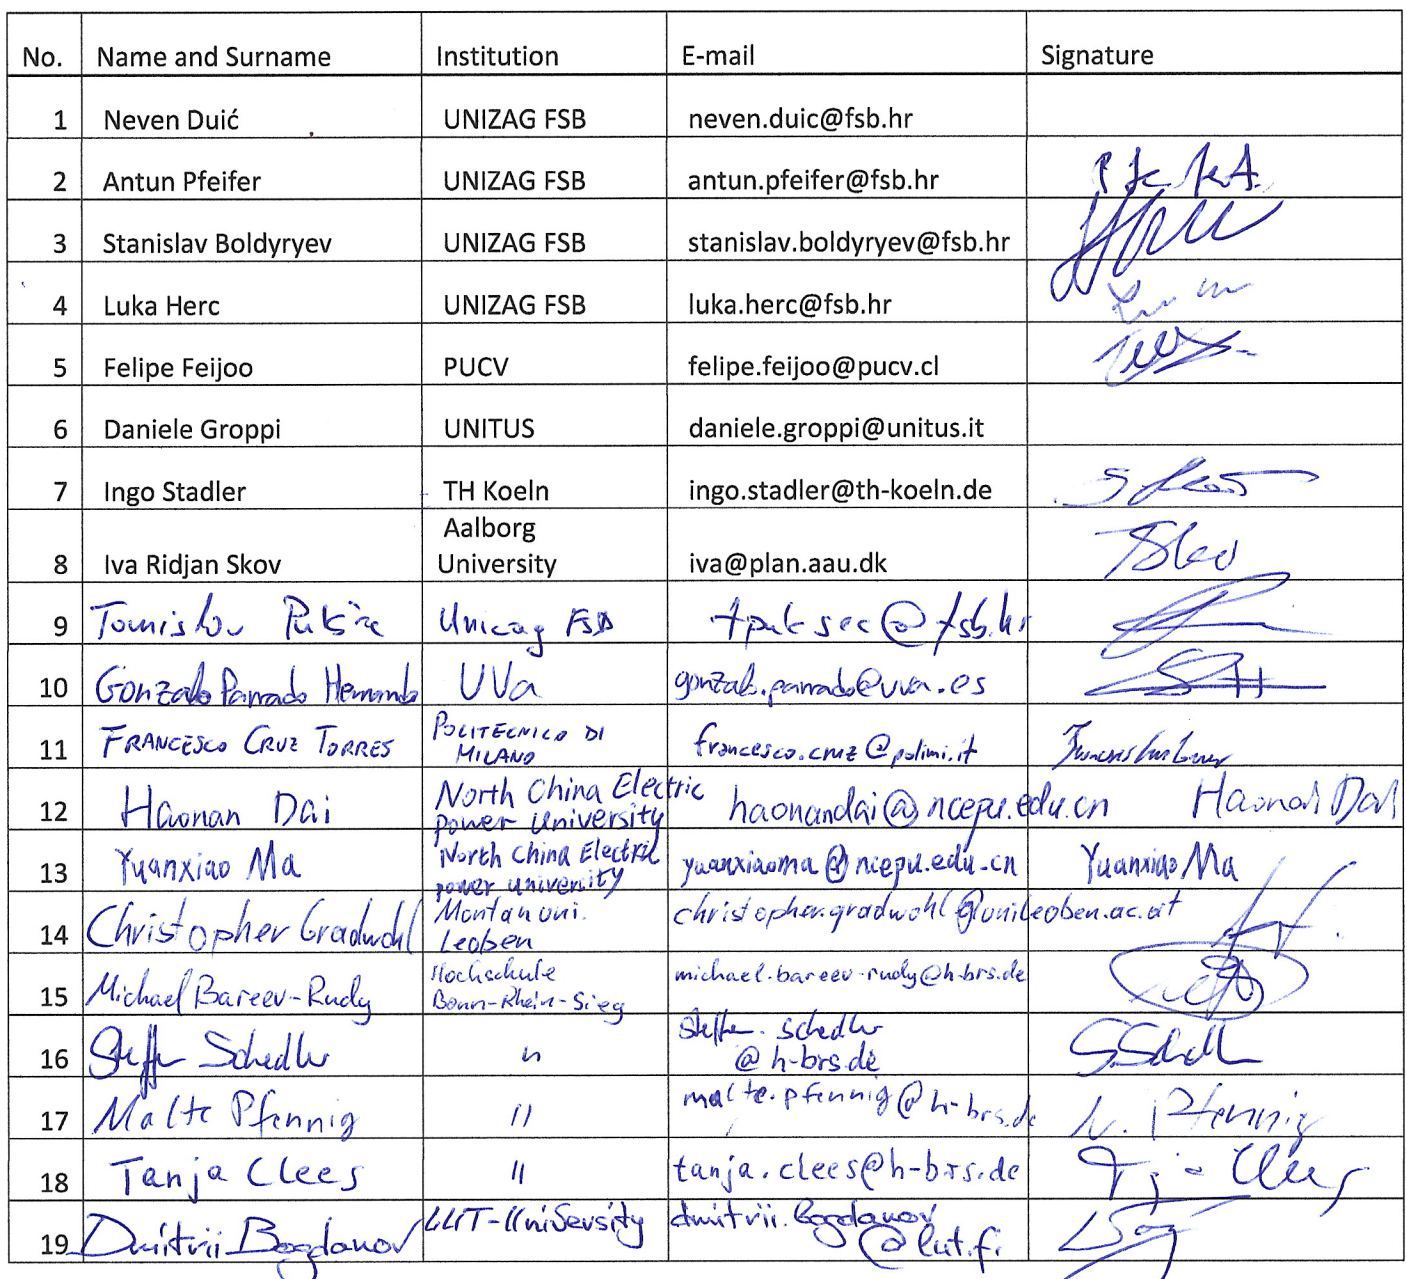 No. Name and Surname Institution E-mail Signature
1 Neven Duić UNIZAG FSB neven.duic@fsb.hr
2 Antun Pfeifer UNIZAG FSB antun.pfeifer@fsb.hr
3 Stanislav Boldyryev UNIZAG FSB stanislav.boldyryev@fsb.hr
4 Luka Herc UNIZAG FSB luka.herc@fsb.hr
5 Felipe Feijoo PUCV felipe.feijoo@pucv.cl
6 Daniele Groppi UNITUS daniele.groppi@unitus.it
7 Ingo Stadler TH Koeln ingo.stadler@th-koeln.de
Aalborg
8 Iva Ridjan Skov University iva@plan.aau.dk
9 Tomislav Pukšec Unizag FSB tpuksec@fsb.hr
10 Gonzalo Parrado Hernando UVa gonzalo.parrado@uva.es
POLITECNICO DI
11 FRANCESCO CRUZ TORRES MILANO francesco.cruz@polimi.it
North China Electric
12 Haonan Dai power University haonandai@ncepu.edu.cn Haonan Dai
North China Electric
13 Yuanxiao Ma power university yuanxiaoma@ncepu.edu.cn Yuanxiao Ma
Montanuni.
14 Christopher Gradwohl Leoben christopher.gradwohl@unileoben.ac.at
Hochschule
15 Michael Bareev-Rudy Bonn-Rhein-Sieg michael.bareev-rudy@h-brs.de
steffen.schedler
16 Steffen Schedler " @h-brs.de S. Schedler
17 Malte Pfennig " malte.pfennig@h-brs.de M. Pfennig
18 Tanja Clees " tanja.clees@h-brs.de
LUT-University dmitrii.bogdanov
19 Dmitrii Bogdanov @lut.fi